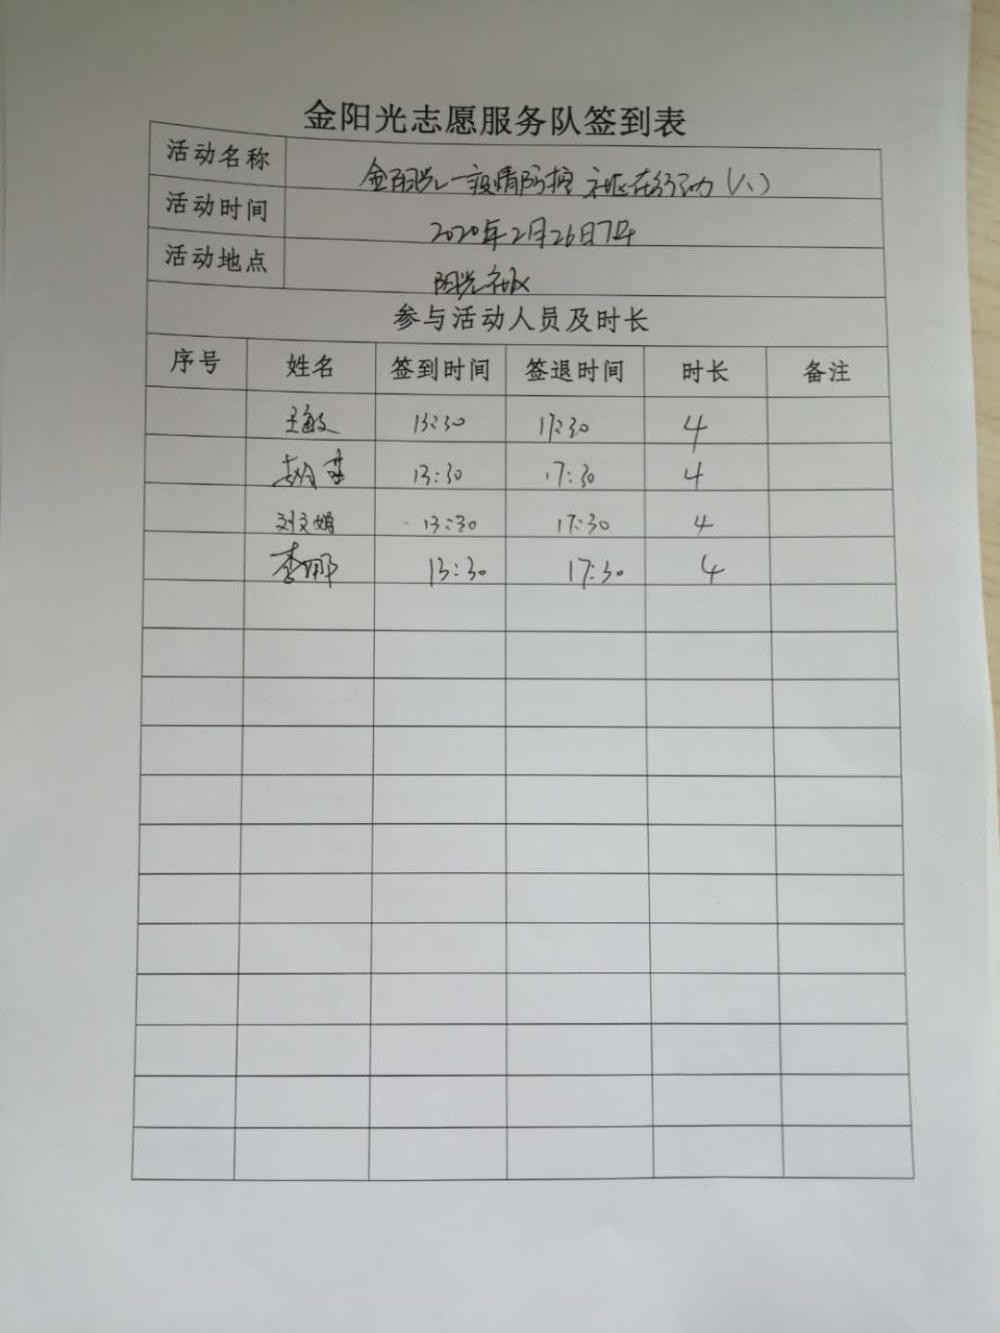 金阳光志愿服务队签到表
活动名称 金阳光—疫情防控 社区在行动(八)
活动时间 2020年2月26日下午
活动地点 阳光社区
参与活动人员及时长
序号 姓名 签到时间 签退时间 时长 备注
王敏 13:30 17:30 4
13:30 17:30 4
刘文娟 13:30 17:30 4
李娜 13:30 17:30 4